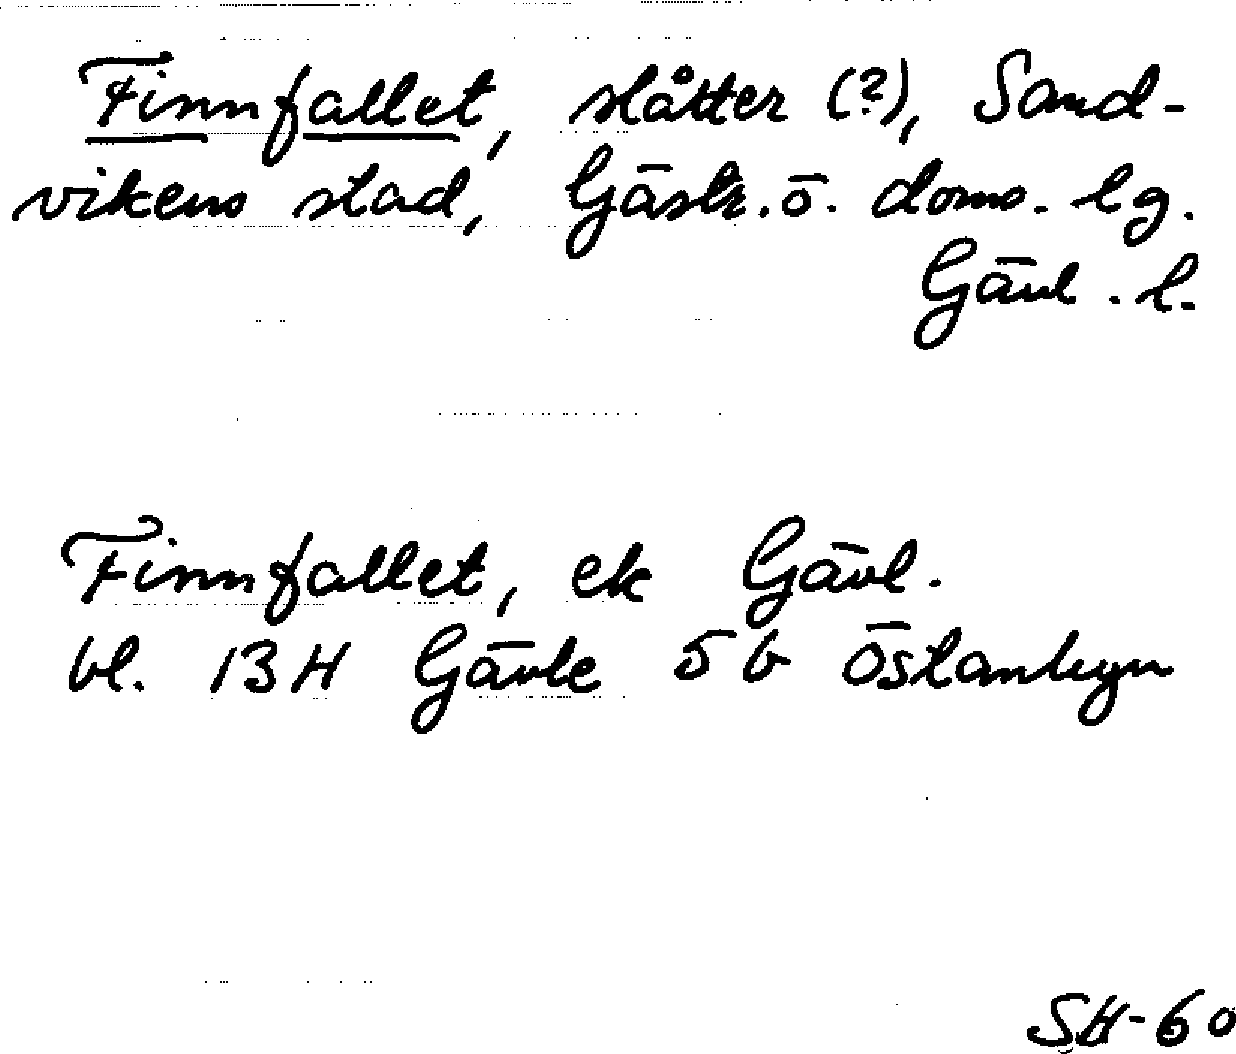 Finnfallet, slåtter (?), Sand-
vikens stad, Gästr. ö. doms. lg.
Gävl. l.
Finnfallet, ek Gävl.
bl. 13H Gävle 5b Östanbyn
SH-60